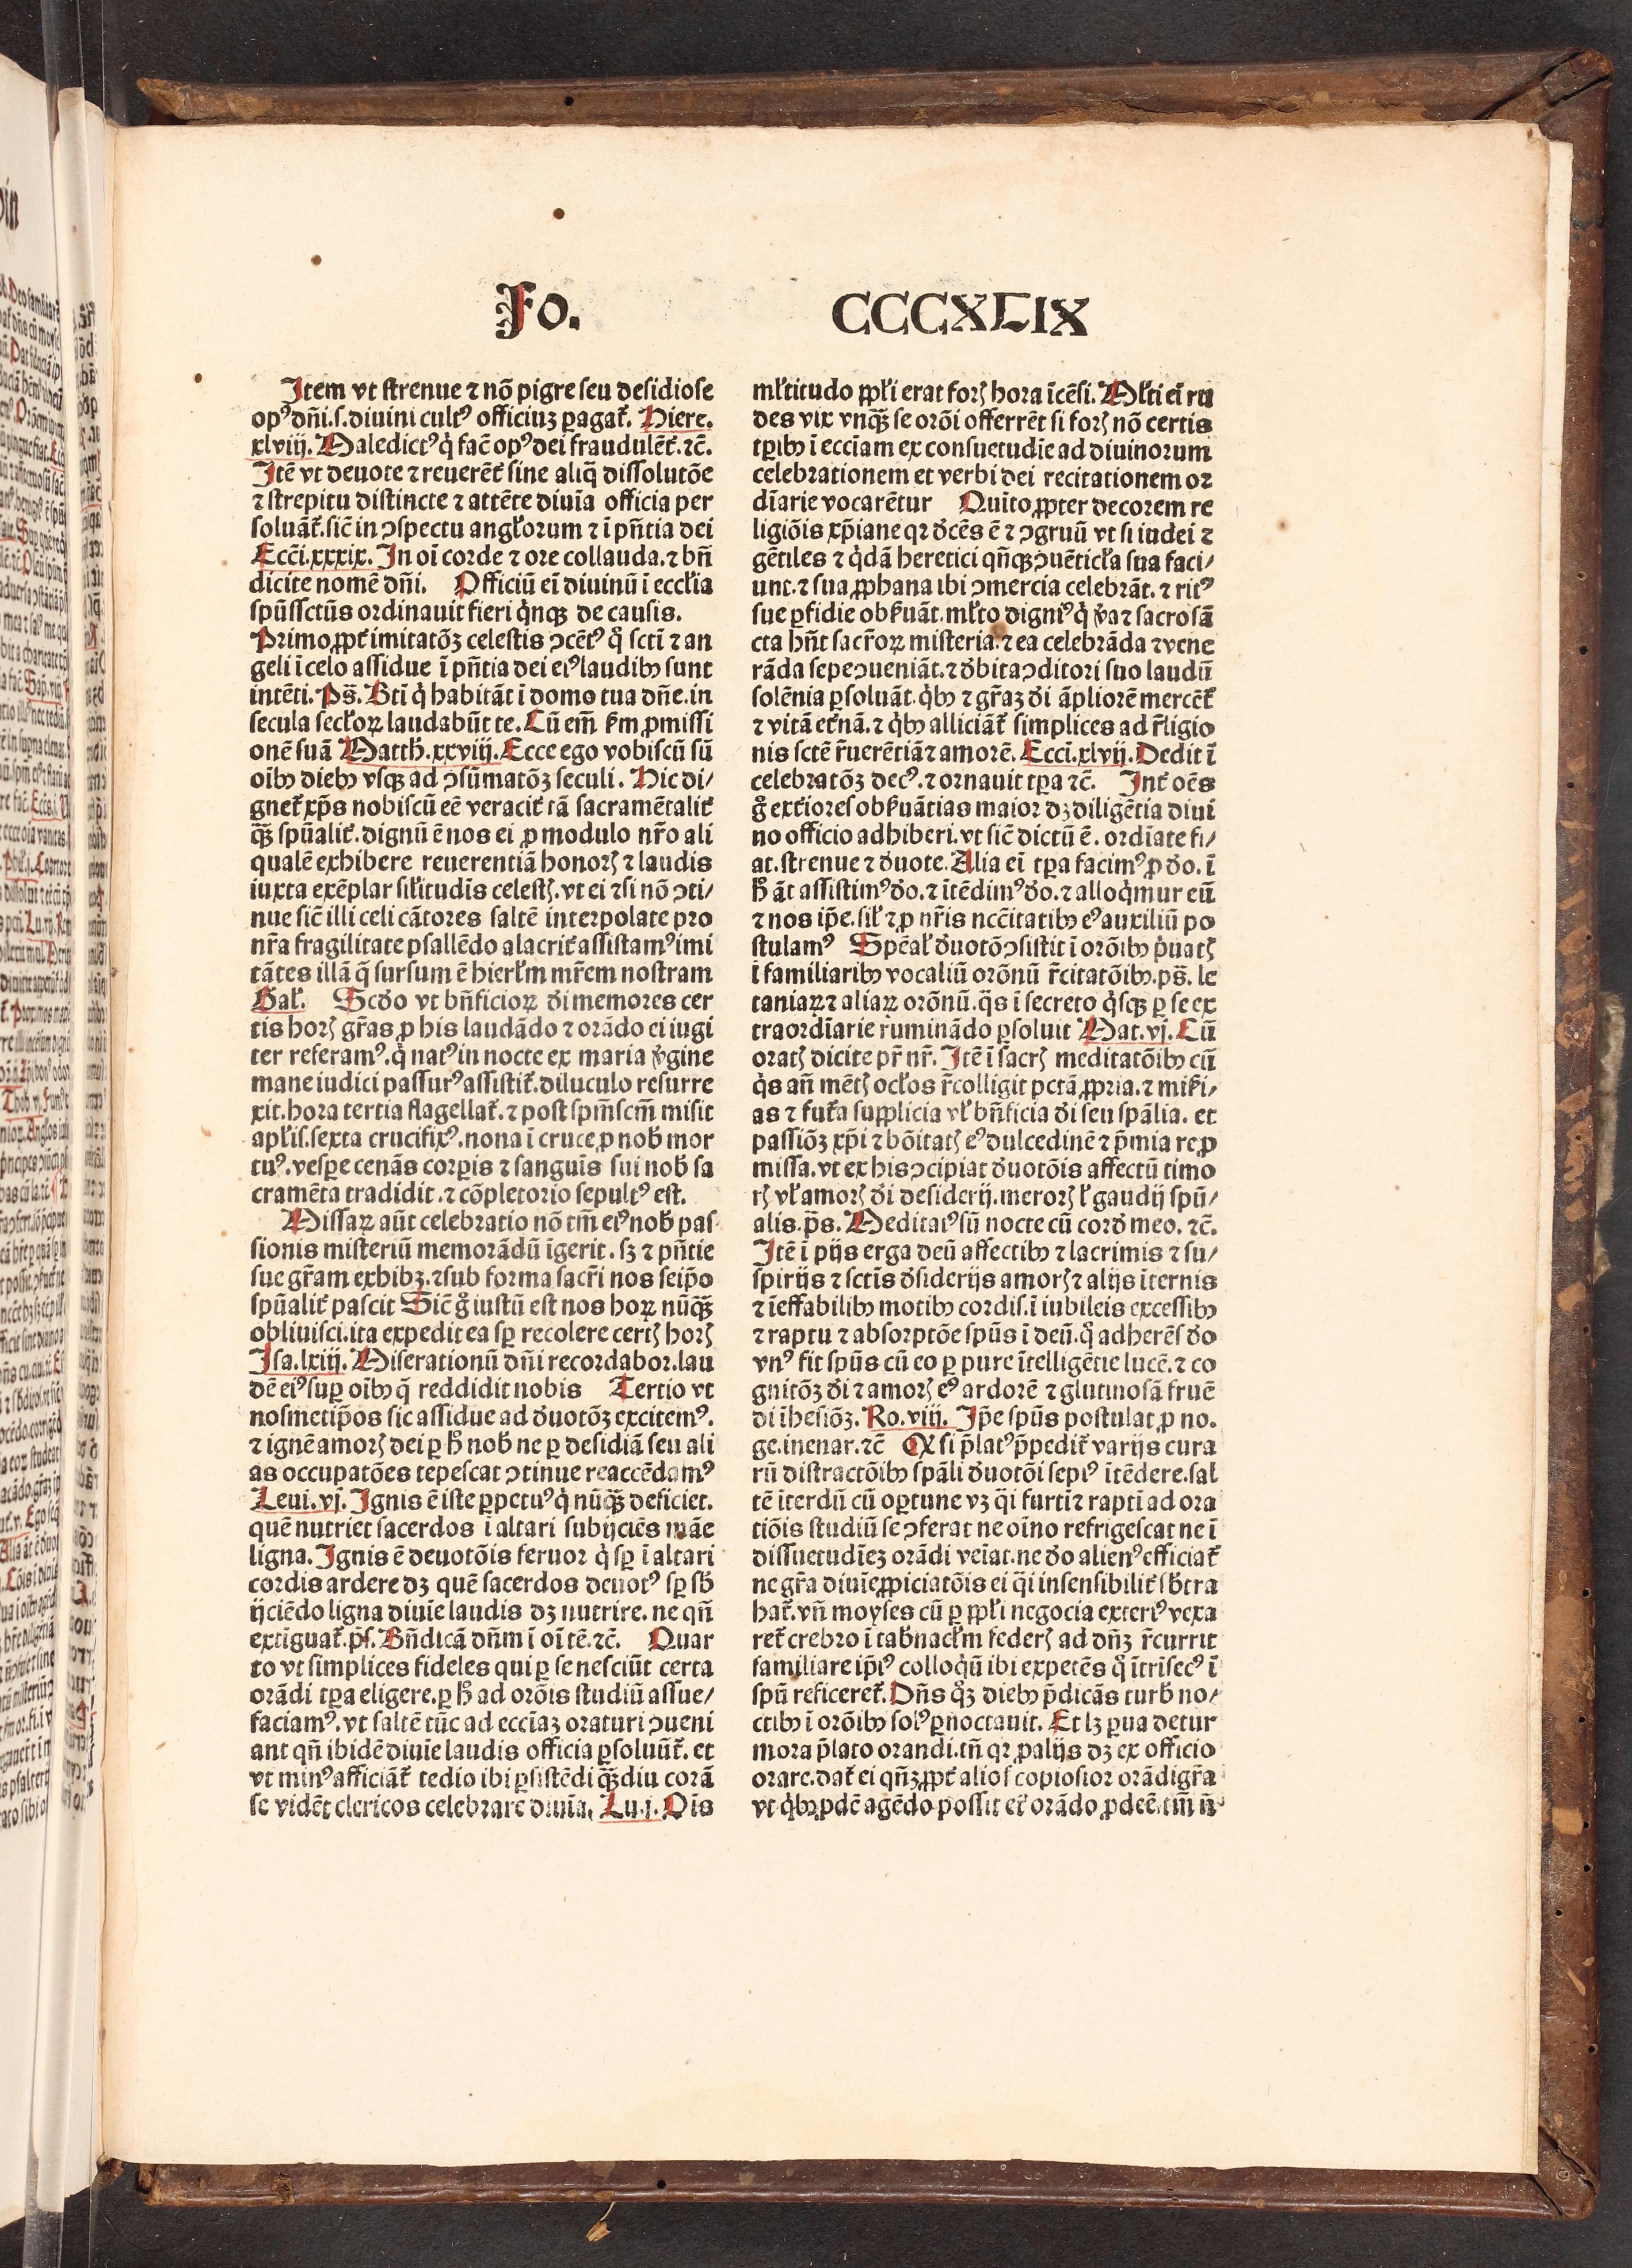 Fo. CCCXLIX
Item vt strenue ⁊ nō pigre seu desidiose
opꝰ dñi.s.diuini cultꝰ officiuz ꝑagat᷑. Hiere.
xlviij. Maledictꝰ q̇ fac̄ opꝰ dei fraudulēt᷑.⁊c̄.
Itē vt deuote ⁊ reuerēt᷑ sine aliq̄ dissolutōe
⁊ strepitu distincte ⁊ attēte diuīa officia per
soluāt᷑.sic̄ in ɔspectu angłorum ⁊ ī pñtia dei
Eccī.xxxix. In oī corde ⁊ ore collauda.⁊ bñ
dicite nomē dñi. Officiū eī diuinū ī eccłia
spūssctūs ordinauit fieri q̇nqꝫ de causis.
Primo ꝓpt᷑ imitatōꝫ celestis ɔcētꝰ q̇ sctī ⁊ an
geli ī celo assidue ī pñtia dei eiꝰ laudibꝫ sunt
intēti. Ps̄. Bti q̇ habitāt ī domo tua dñe.in
secula secłoꝝ laudabūt te. Cū em̄ ẜm ꝓmissi
onē suā Matth̄.xxviij. Ecce ego vobiscū sū
oībꝫ diebꝫ vsqꝫ ad ɔsūmatōꝫ seculi. Hic di/
gnet᷑ xp̄s nobiscū eē veracit᷑ tā sacramētalit᷑
qꝫ̄ spūalit᷑.dignū ē nos ei ꝓ modulo nr̄o ali
qualē exhibere reuerentiā honorꝭ ⁊ laudis
iuxta exēplar siłitudīs celestꝭ.vt ei ⁊si nō ɔti/
nue sic̄ illi celi cātores saltē interpolate pro
nr̄a fragilitate psallēdo alacrit᷑ assistamꝰ imi
tātes illā q̄ sursum ē hierłm mr̄em nostram
Gał. Scd̄o vt bñficioꝝ d̄i memores cer
tis horꝭ gr̄as ꝓ his laudādo ⁊ orādo ei iugi
ter referamꝰ.q̇ natꝰ in nocte ex maria v̇gine
mane iudici passurꝰ assistit᷑.diluculo resurre
xit.hora tertia flagellat᷑.⁊ post spm̄scm̄ misit
apłis.sexta crucifixꝰ.nona ī cruce ꝓ nob̄ mor
tuꝰ.vesꝑe cenās corꝑis ⁊ sanguīs sui nob̄ sa
cramēta tradidit.⁊ cōpletorio sepultꝰ est.
Missaꝝ aūt celebratio nō tm̄ eiꝰ nob̄ pas
sionis misteriū memorādū īgerit.sꝫ ⁊ pñtie
sue gr̄am exhibꝫ.⁊sub forma sacr̄i nos seip̄o
spūalit᷑ pascit Sic̄ g̊ iustū est nos hoꝝ nūqꝫ̄
obliuisci.ita expedit ea sꝑ recolere certꝭ horꝭ
Isa.lxiij. Miserationū dñi recordabor.lau
dē eiꝰ suꝑ oībꝫ q̄ reddidit nobis Tertio vt
nosmetip̄os sic assidue ad d̓uotōꝫ excitemꝰ.
⁊ ignē amorꝭ dei ꝑ h̄ nob̄ ne ꝑ desidiā seu ali
as occupatōes tepescat ɔtinue reaccēdamꝰ
Leui.vj. Ignis ē iste ꝑpetuꝰ q̇ nūqꝫ̄ deficiet.
quē nutriet sacerdos ī altari subijciēs māe
ligna. Ignis ē deuotōis feruor q̇ sꝑ ī altari
cordis ardere dꝫ quē sacerdos deuotꝰ sꝑ sb̄
ijciēdo ligna diuie laudis dꝫ nutrire.ne qñ
extiguat᷑.ps̄. Bñdicā dñm ī oī tē.⁊c̄. Quar
to vt simplices fideles qui ꝑ se nesciūt certa
orādi tꝑa eligere.ꝑ h̄ ad orōis studiū assue/
faciamꝰ.vt saltē tūc ad ecciaꝫ oraturi ɔueni
ant qñ ibidē diuie laudis officia ꝑsoluūt᷑.et
vt minꝰ afficiāt᷑ tedio ibi ꝑsistēdi qꝫ̄diu corā
se vidēt clericos celebrare diuīa. Lu.j. Oīs
młtitudo ppłi erat forꝭ hora īcēsi. Młti eī ru
des vix vnqꝫ̄ se orōi offerrēt si forꝭ nō certis
tꝑibꝫ ī ecciam ex consuetudie ad diuinorum
celebrationem et verbi dei recitationem or
dīarie vocarētur Quīto ꝓpter decorem re
ligiōis xp̄iane qꝛ d̓cēs ē ⁊ ɔgruū vt si iudei ⁊
gētiles ⁊ q̇dā heretici qñqꝫ ɔuēticła sua faci/
unt.⁊ sua ꝓphana ibi ɔmercia celebrāt.⁊ ritꝰ
sue ꝑfidie obẜuāt.młto dignꝰ q̇ v̓a ⁊ sacrosā
cta hñt sacr̄oꝝ misteria.⁊ ea celebrāda ⁊vene
rāda sepe ɔueniāt.⁊ d̓bita ɔditori suo laudū
solēnia ꝑsoluāt.q̇bꝫ ⁊ gr̄aꝫ d̄i āpliorē mercēt᷑
⁊ vitā et᷑nā.⁊ q̇bꝫ alliciāt᷑ simplices ad r̄ligio
nis sctē r̄uerētiā⁊ amorē. Eccī.xlvij. Dedit ī
celebratōꝫ decꝰ.⁊ ornauit tꝑa ⁊c̄. Int᷑ oēs
g̊ ext᷑iores obẜuātias maior dꝫ diligētia diui
no officio adhiberi.vt sic̄ dictū ē.ordīate fi/
at.strenue ⁊ d̓uote. Alia eī tꝑa facimꝰ ꝓ d̄o.ī
h̄ āt assistimꝰ d̄o.⁊ ītēdimꝰ d̄o.⁊ alloq̇mur eū
⁊ nos ip̄e.sił ⁊ ꝓ nr̄is nccītatibꝫ eꝰ auxiliū po
stulamꝰ Spēał d̓uotō ɔsistit ī orōibꝫ p̓uatꝭ
ī familiaribꝫ vocaliū orōnū r̄citatōibꝫ.ps̄. le
taniaꝝ⁊ aliaꝝ orōnū.q̄s ī secreto q̇sqꝫ ꝑ se ex
traordīarie ruminādo ꝑsoluit Mat.vj. Cū
oratꝭ dicite pr̄ nr̄. Itē ī sacrꝭ meditatōibꝫ cū
q̇s an̄ mētꝭ ocłos r̄colligit pctā ꝓpria.⁊ miẜi/
as ⁊ fut᷑a supplicia vł bñficia d̄i seu spālia. et
passiōꝫ xp̄i ⁊ bōitatꝭ eꝰ dulcedinē ⁊ p̄mia reꝓ
missa.vt ex his ɔcipiat d̓uotōis affectū timo
rꝭ vł amorꝭ d̄i desiderij.merorꝭ ł gaudij spū/
alis.ps̄. Meditatꝰ sū nocte cū cord̓ meo.⁊c̄.
Itē ī pijs erga deū affectibꝫ ⁊ lacrimis ⁊ su/
spirijs ⁊ sctīs d̓siderijs amorꝭ⁊ alijs īternis
⁊ īeffabilibꝫ motibꝫ cordis.ī iubileis excessibꝫ
⁊ raptu ⁊ absorptōe spūs ī deū.q̇ adherēs d̄o
vnꝰ fit spūs cū eo ꝑ pure ītelligētie lucē.⁊ co
gnitōꝫ d̄i ⁊ amorꝭ eꝰ ardorē ⁊ glutinosā fruē
di īhesiōꝫ. Ro.viij. Ip̄e spūs postulat ꝓ no.
ge.inenar.⁊c̄ Qꝫ si p̄latꝰ p̄pedit᷑ varijs cura
rū distractōibꝫ spāli d̓uotōi sepiꝰ ītēdere.sal
tē īterdū cū oꝑtune vꝫ q̄i furti⁊ raptī ad ora
tiōis studiū se ɔferat ne oīno refrigescat ne ī
dissuetudīeꝫ orādi veīat.ne d̄o alienꝰ efficiat᷑
ne gr̄a diuie ꝓpiciatōis ei q̄i insensibilit᷑ sb̄tra
hat᷑.vñ moyses cū ꝑ ppłi negocia exteriꝰ vexa
ret᷑ crebro ī tab̄nacłm federꝭ ad dñꝫ r̄currit
familiare ip̄iꝰ colloq̇ū ibi expetēs q̇ ītrisecꝰ ī
spū reficeret᷑. Dñs qꝫ diebꝫ p̄dicās turb̄ no/
ctibꝫ ī orōibꝫ solꝰ ꝑnoctauit. Et lꝫ ꝑua detur
mora p̄lato orandi.tñ qꝛ ꝓ alijs dꝫ ex officio
orare.dat᷑ ei qñꝫ ꝓpt᷑ alios copiosior orādi gr̄a
vt q̇bꝫ ꝓdē agēdo possit et᷑ orādo ꝓdeē.tm̄ ñ